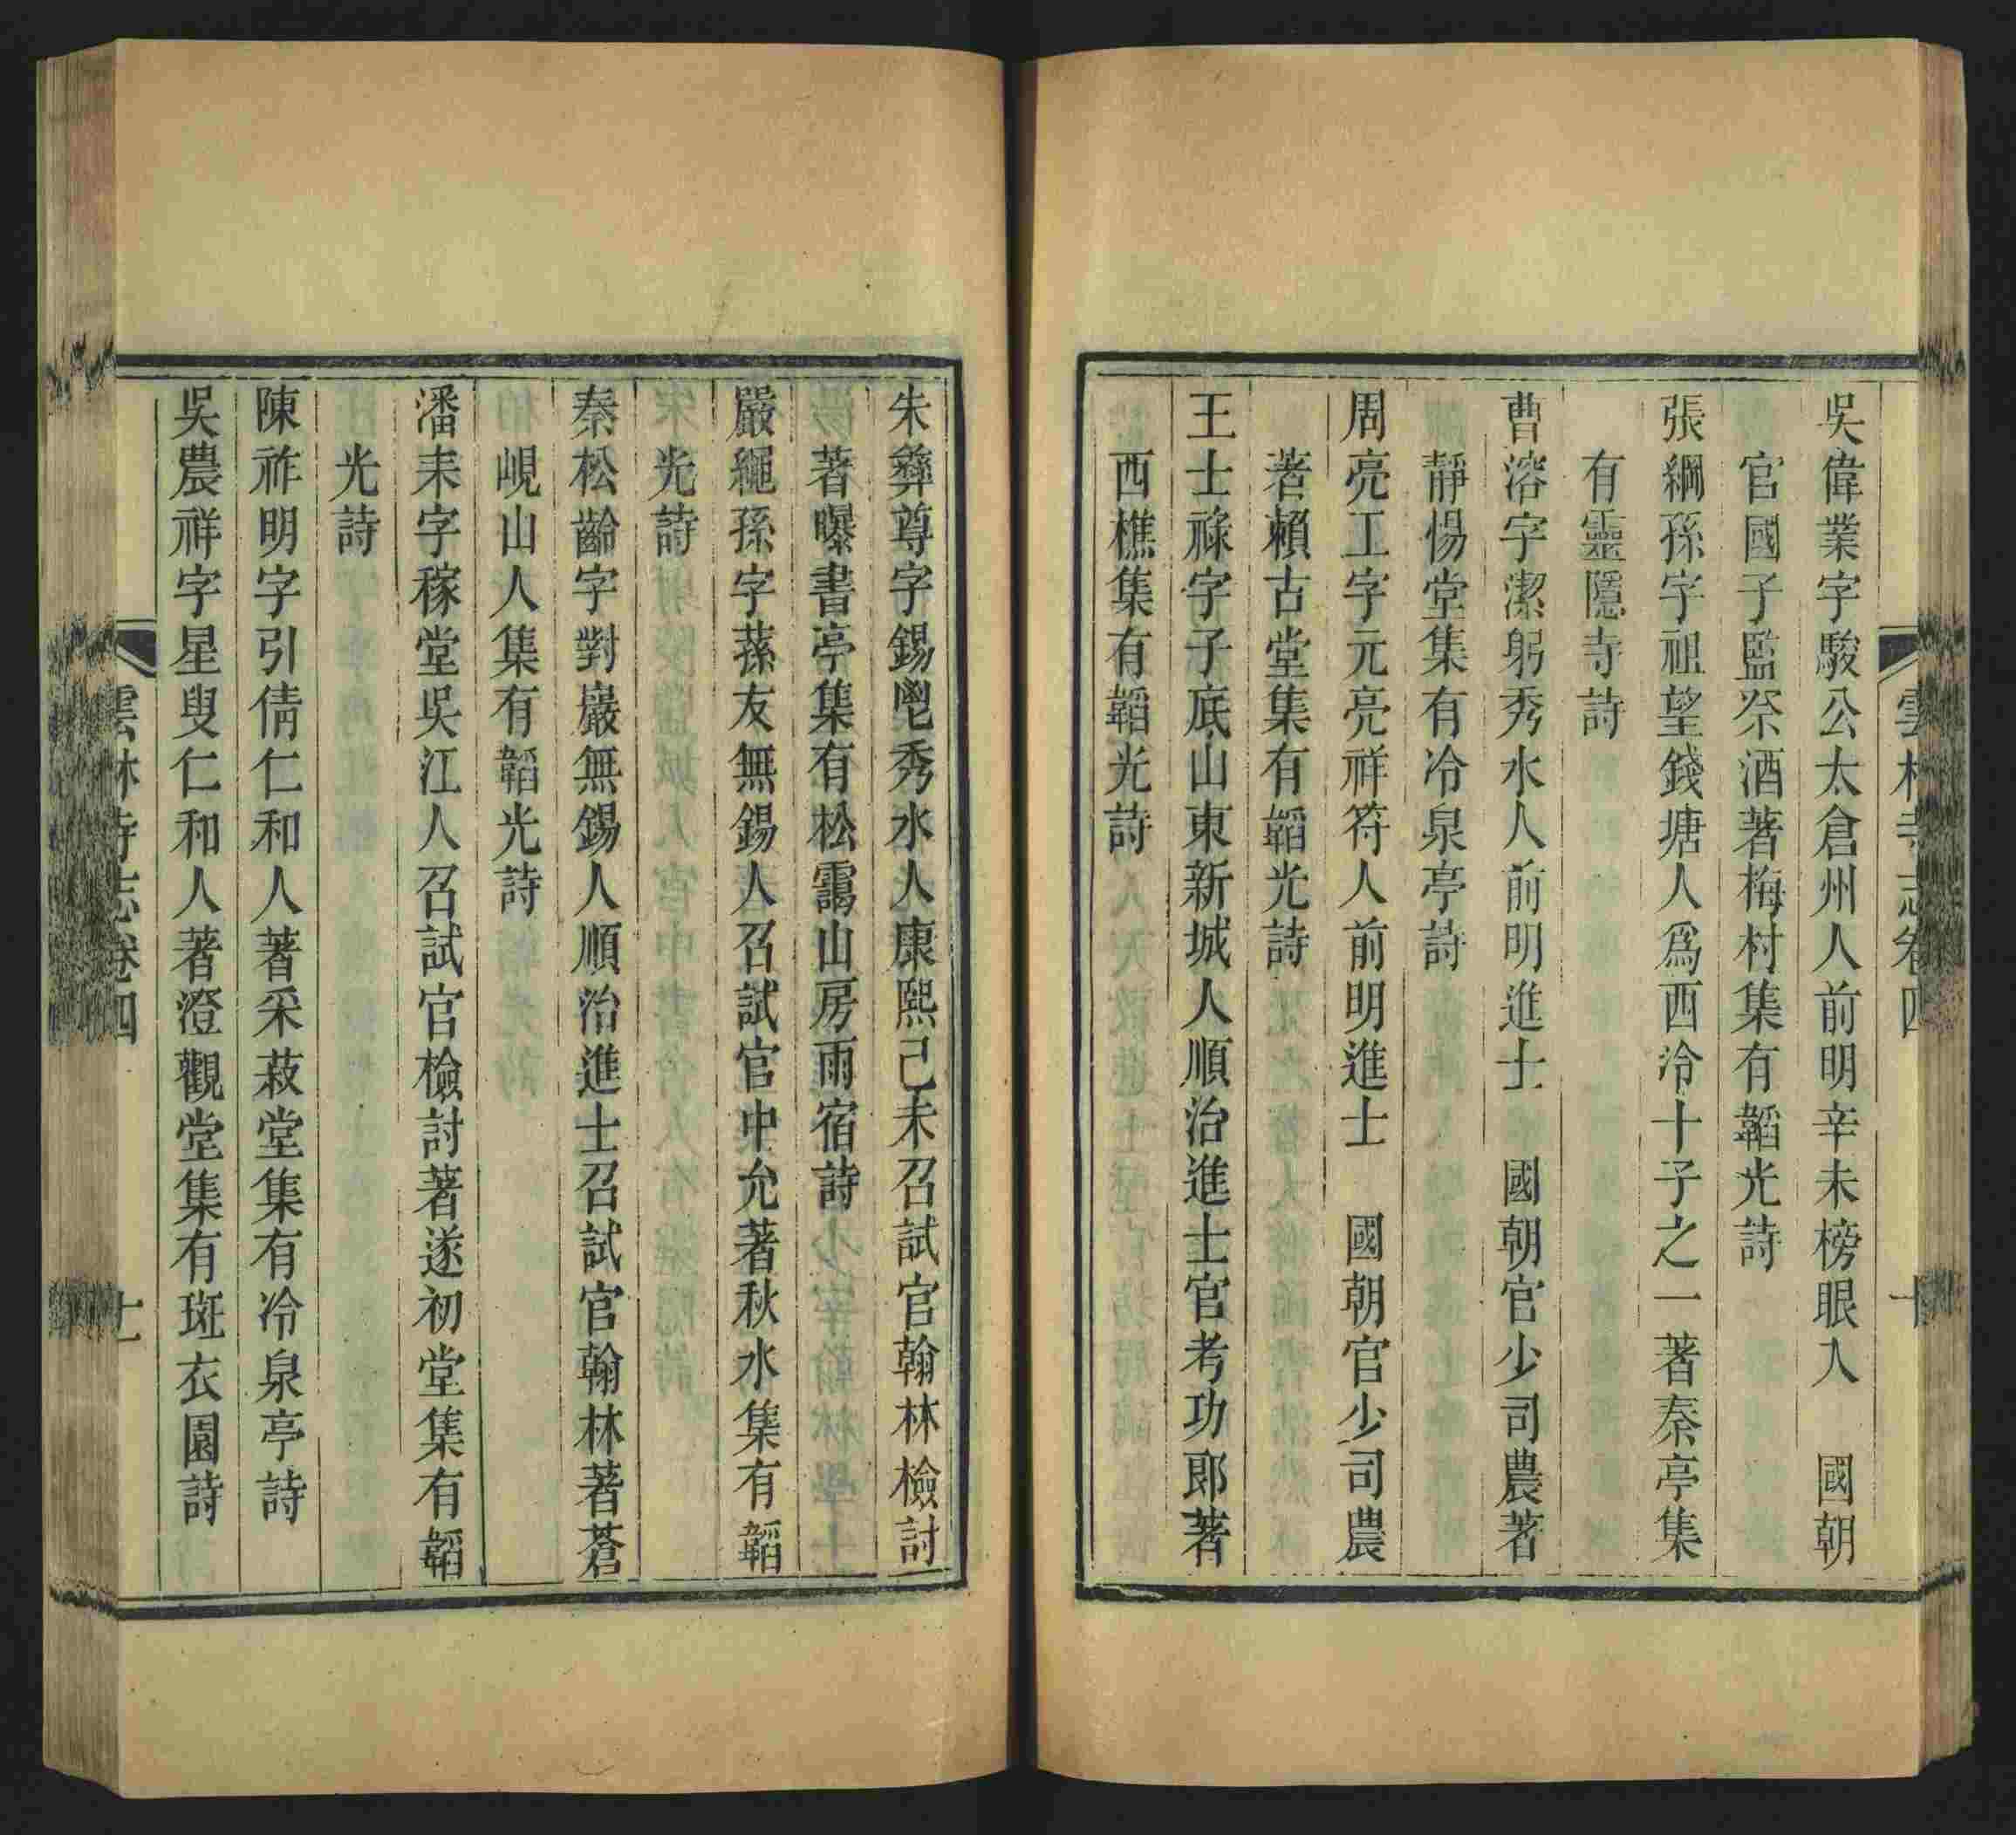 雲林寺志卷四
吳偉業字駿公太倉州人前明辛未榜眼入　國朝
官國子監祭酒著梅村集有韜光詩
張綱孫字祖望錢塘人爲西泠十子之一著秦亭集
有靈隱寺詩
曹溶字潔躬秀水人前明進士　國朝官少司農著
靜惕堂集有冷泉亭詩
周亮工字元亮祥符人前明進士　國朝官少司農
著賴古堂集有韜光詩
王士祿字子底山東新城人順治進士官考功郎著
西樵集有韜光詩
朱彝尊字錫鬯秀水人康熙己未召試官翰林檢討
著曝書亭集有松靄山房雨宿詩
嚴繩孫字蓀友無錫人召試官中允著秋水集有韜
光詩
秦松齡字對巖無錫人順治進士召試官翰林著蒼
峴山人集有韜光詩
潘耒字稼堂吳江人召試官檢討著遂初堂集有韜
光詩
陳祚明字引倩仁和人著采菽堂集有冷泉亭詩
吳農祥字星叟仁和人著澄觀堂集有斑衣園詩
雲林寺志卷四